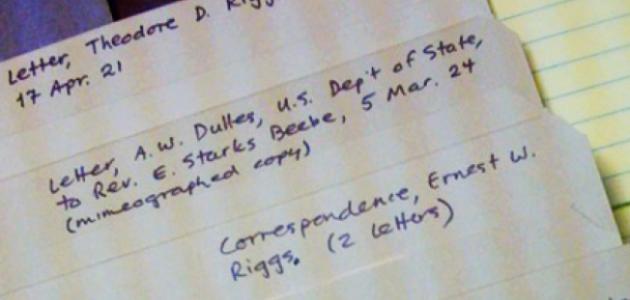 Letter, Theodore D.
17 Apr. 21
Letter, A. W. Dulles, U.S. Dep't of State,
to Rev. E. Starks Beebe, 5 Mar. 24
(mimeographed copy)
Correspondence, Ernest W.
Riggs. (2 letters)